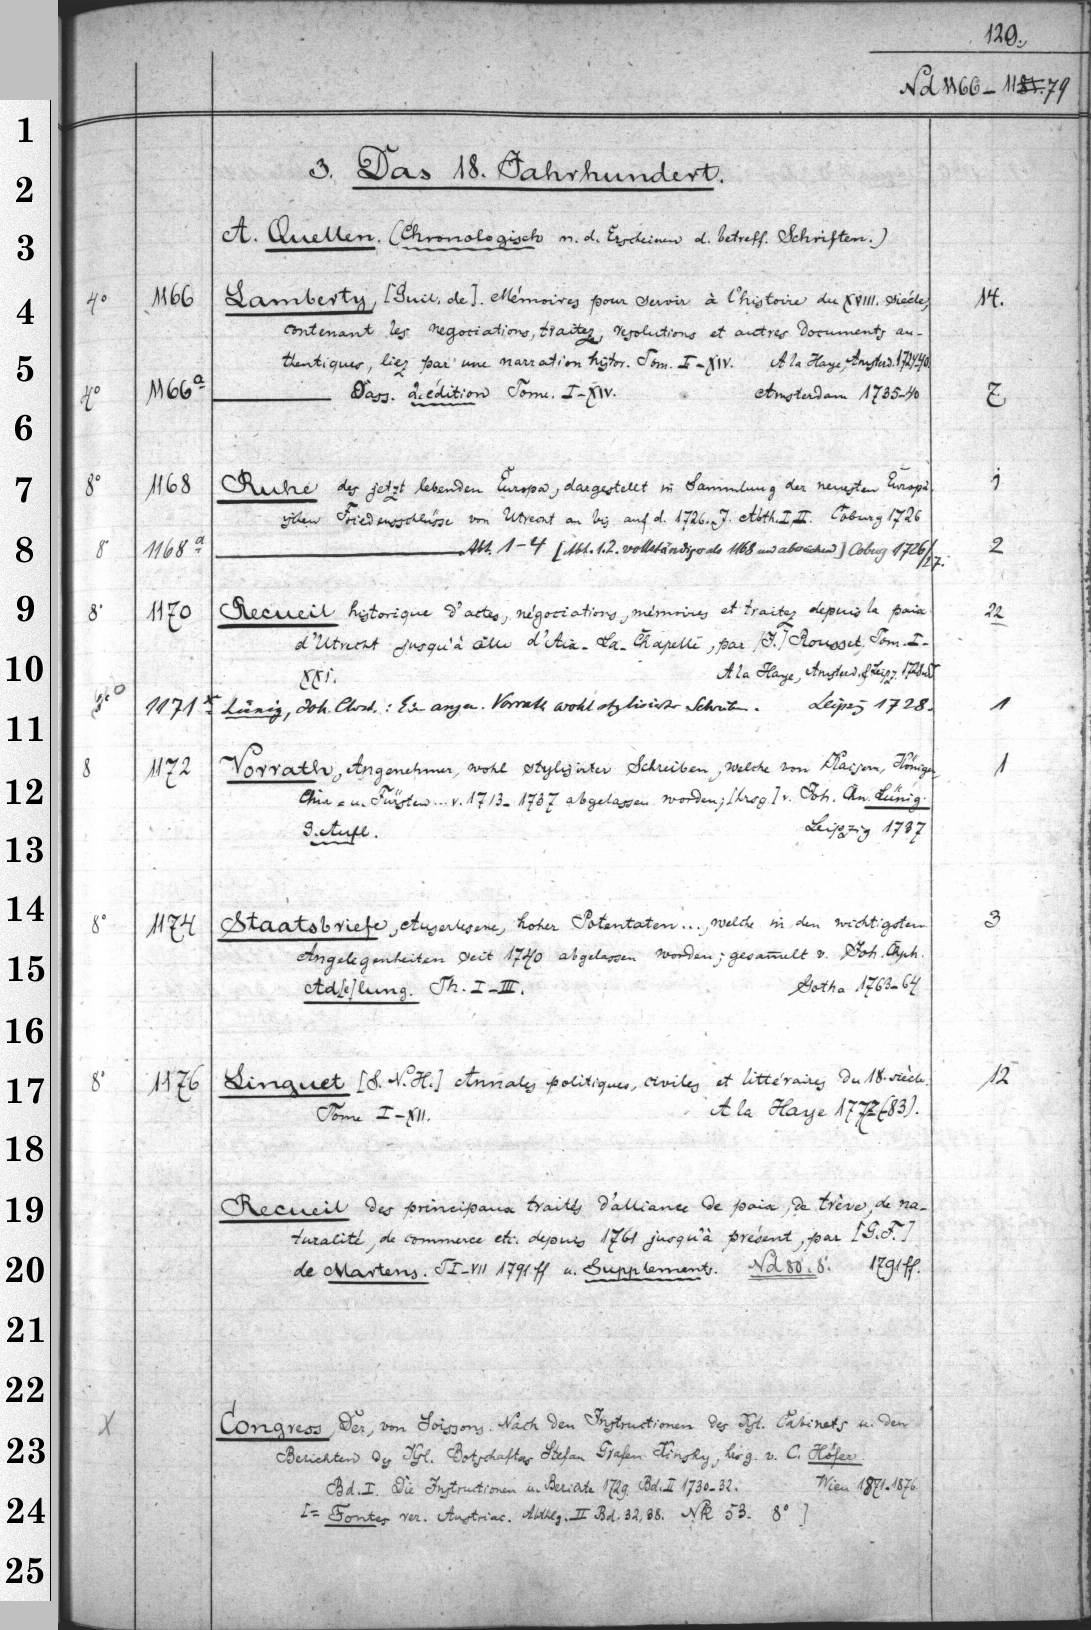 120.
Nd 1166 - 1181. 79
3. Das 18. Jahrhundert.
A. Quellen. (Chronologisch n. d. Erscheinen d. betreff. Schriften.)
4° 1166 Lamberty, [Guil. de]. Mémoires pour servir à l'histoire du XVIII. siècle, 14.
contenant les negociations, traitez, resolutions et autres documents au-
thentiques, liez par une narration histor. Tom. I-XIV. A la Haye, Amsterd. 1724-40.
4° 1166a Dass. 2. édition Tome. I-XIV. Amsterdam 1735-40 7
8° 1168 Ruhe des jetzt lebenden Europa, dargestellt in Sammlung der neuesten Europä- 1
ischen Friedensschlüsse von Utrecht an bis auf d. 1726. J. Abth. I, II. Coburg 1726
8 1168a Abt. 1-4 [Abt. 1.2. vollständiger als 1168 und abweichend] Coburg 1726/27. 2
8° 1170 Recueil historique d'actes, négociations, mémoires et traitez depuis la paix 22
d'Utrecht jusqu'à celle d'Aix-la-Chapelle, par [J.] Rousset, Tom. I-
XXI. A la Haye, Amsterd. & Leipz. 1728
8° 1171 Lünig, Joh. Christ.: Ein angen. Vorrath wohl stylisirter Schreiben. Leipzig 1728. 1
8 1172 Vorrath, Angenehmer, wohl stylisirter Schreiben, welche von Kaisern, Königen, 1
Chur- u. Fürsten... v. 1713-1737 abgelassen worden; [hrsg.] v. Joh. Chn. Lünig.
3. Aufl. Leipzig 1737
8° 1174 Staatsbriefe, Auserlesene, hoher Potentaten..., welche in den wichtigsten 3
Angelegenheiten seit 1740 abgelassen worden; gesam̄elt v. Joh. Chph.
Ad[e]lung. Th. I-III. Gotha 1763-64
8° 1176 Linguet [S. N. H.] Annales politiques, civiles et littéraires du 18. siècle. 12
Tome I-XII. A la Haye 1777(-83).
Recueil des principaux traités d'alliance de paix, de trève, de na-
turalité, de commerce etc. depuis 1761 jusqu'à présent, par [G. F.]
de Martens. T I-VII 1791 ff u. Supplements. Nd 80. 8°. 1791 ff.
X Congress, Der, von Soissons. Nach den Instructionen des Ksl. Cabinets u. den
Berichten des Ksl. Botschafters Stefan Grafen Kinsky, hrsg. v. C. Höfer
Bd. I. Die Instructionen u. Berichte 1729. Bd. II 1730-32. Wien 1871-1876.
[= Fontes rer. Austriac. Abthlg. II Bd. 32, 38. NR 53. 8° ]
1
2
3
4
5
6
7
8
9
10
11
12
13
14
15
16
17
18
19
20
21
22
23
24
25